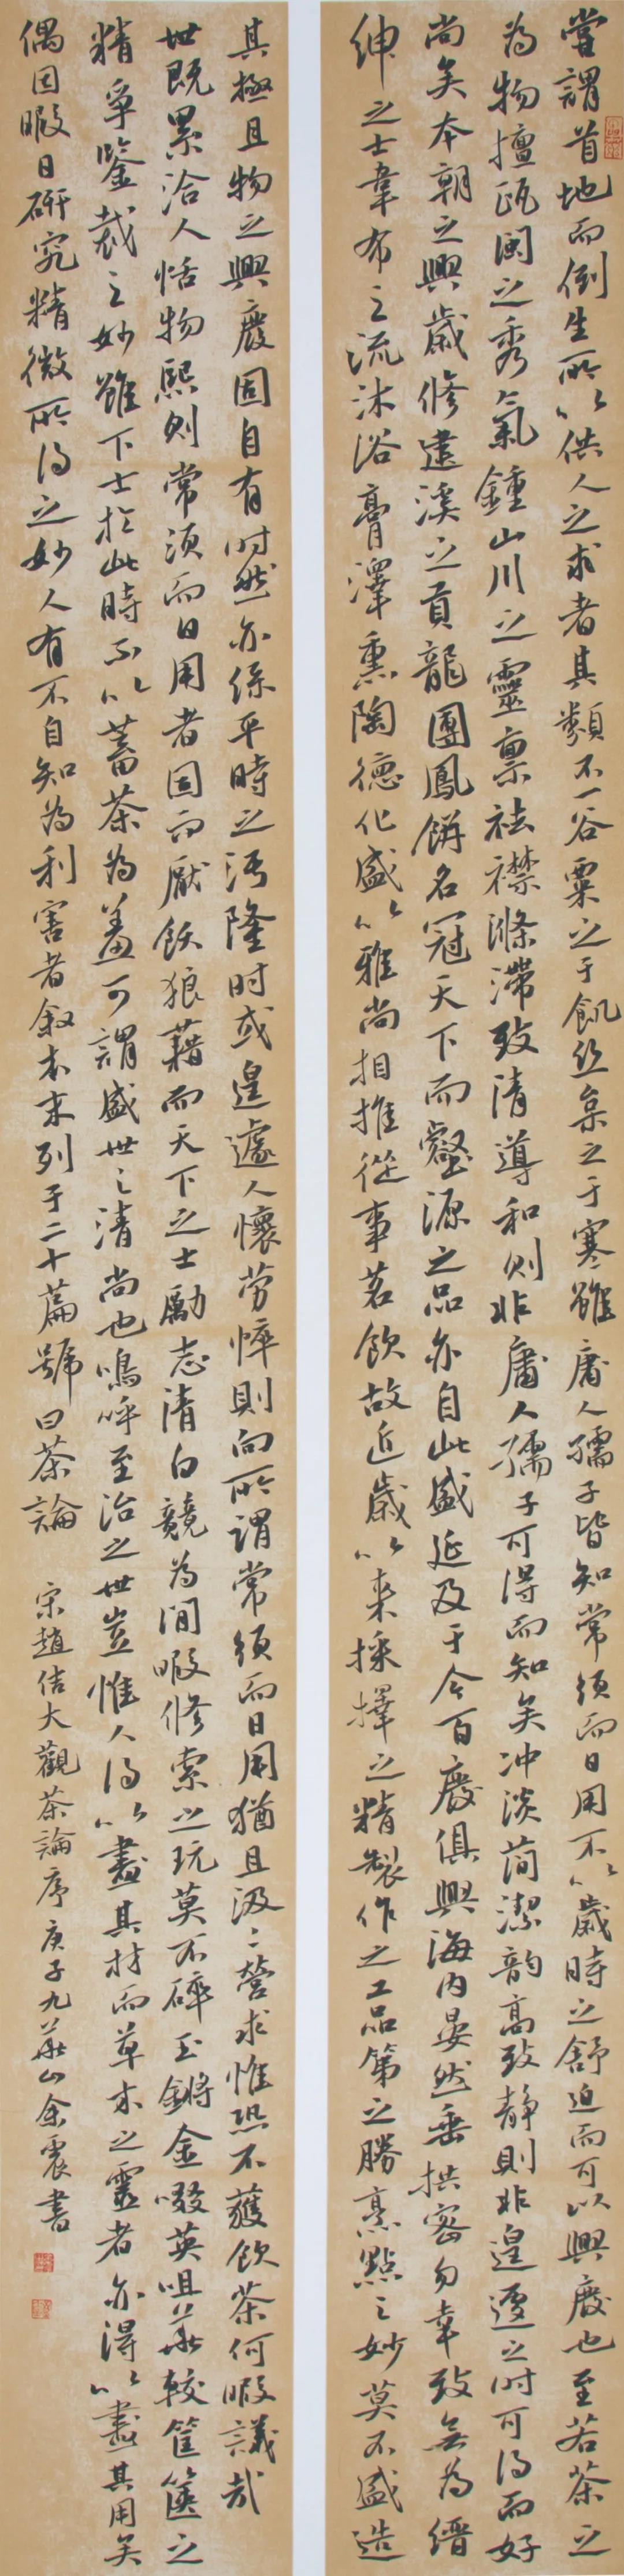 嘗謂首地而倒生所以供人之求者其類不一谷粟之于飢絲枲之于寒雖庸人孺子皆知常須而日用不以歲時之舒迫而可以興廢也至若茶之
為物擅甌閩之秀氣鍾山川之靈禀祛襟滌滯致清導和則非庸人孺子可得而知矣冲淡简潔韵高致静則非遑遽之时可得而好
尚矣本朝之興歲修建溪之貢龍團鳳餅名冠天下而壑源之品亦自此盛延及于今百廢俱興海内晏然垂拱密勿幸致无為缙
紳之士韋布之流沐浴膏澤熏陶德化盛以雅尚相推從事茗飲故近歲以来採擇之精製作之工品第之勝烹點之妙莫不盛造
其極且物之興廢固自有时然亦係乎時之污隆时或遑遽人懷劳悴則向所谓常须而日用猶且汲々營求惟恐不獲飲茶何暇議哉
世既累洽人恬物熙则常须而日用者固而厭飫狼藉而天下之士勵志清白競為閒暇修索之玩莫不碎玉鏘金啜英咀華較筐篋之
精爭鑒裁之妙雖下士於此時不以蓄茶為羞可謂盛世之清尚也嗚呼至治之世豈惟人得以盡其材而草木之靈者亦得以盡其用矣
偶因暇日研究精微所得之妙人有不自知為利害者叙本末列于二十篇號曰茶論　宋趙佶大觀茶論序庚子九華山余震書